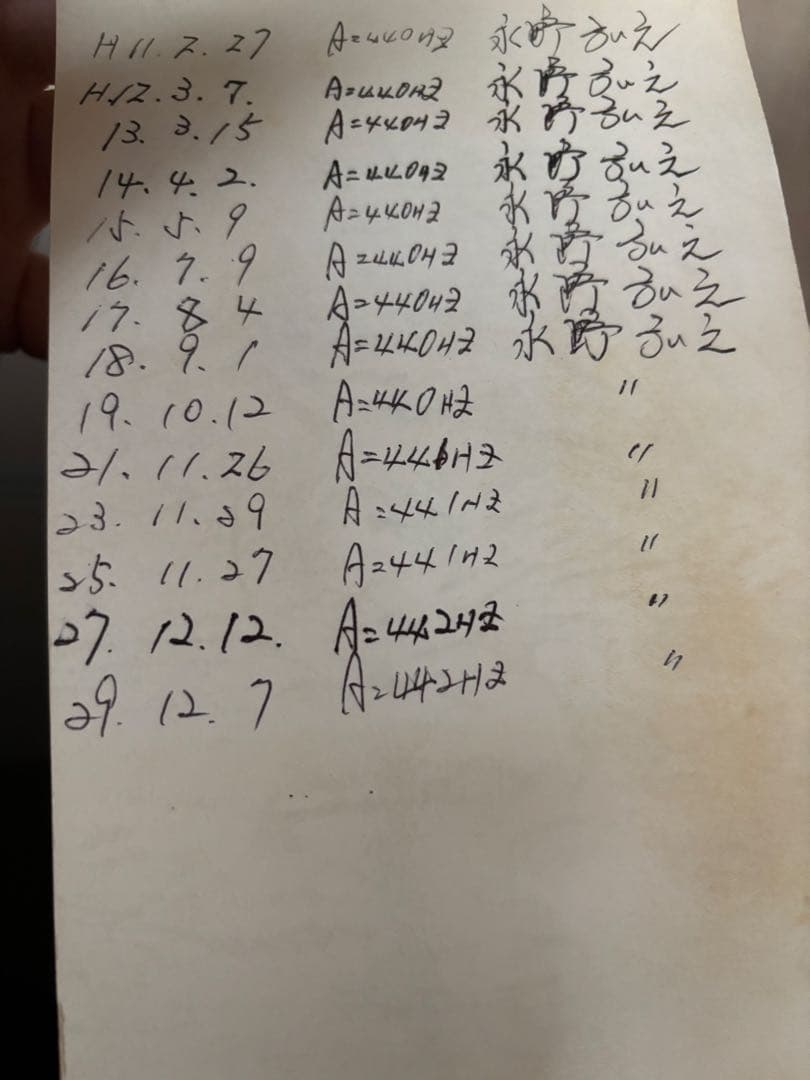 H11.2.27 A=440HZ 永野弘之
H12.3.7. A=440HZ 永野弘之
13.3.15 A=440HZ 永野弘之
14.4.2. A=440HZ 永野弘之
15.5.9 A=440HZ 永野弘之
16.7.9 A=440HZ 永野弘之
17.8 4 A=440HZ 永野弘之
18.9.1 A=440HZ 永野弘之
19.10.12 A=440HZ 〃
21.11.26 A=441HZ 〃
23.11.29 A=441HZ 〃
25.11.27 A=441HZ 〃
27.12.12. A=442HZ 〃
29.12.7 A=442HZ 〃